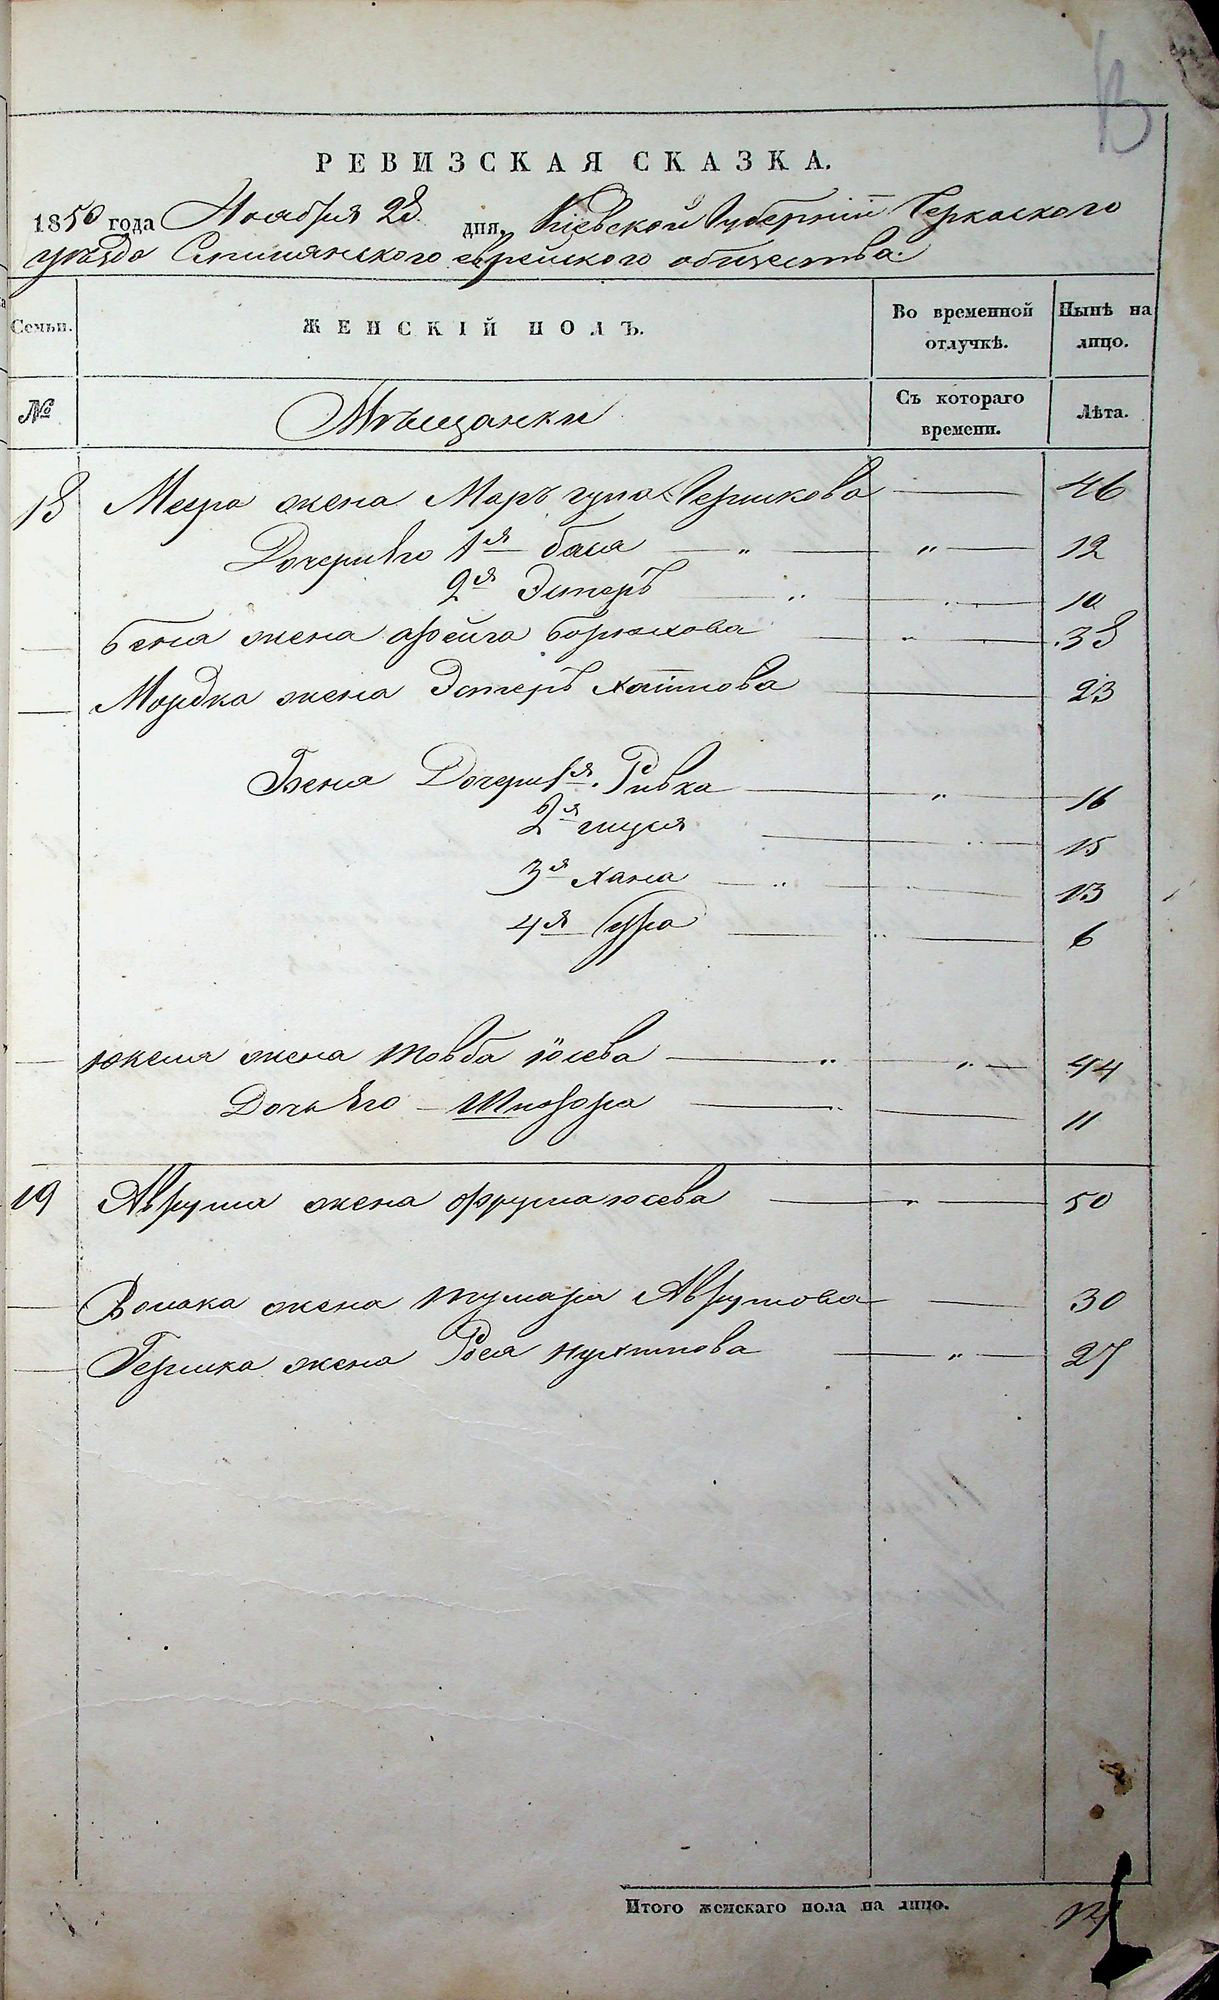 13
РЕВИЗСКАЯ СКАЗКА.
1850 года Ноября 28 дня, Кіевской Губерніи Черкаского
уѣзда еврейского общества.
Семьи. ЖЕНСКІЙ ПОЛЪ. Во временной отлучкѣ. Нынѣ на лицо.
№ Мѣщанки Съ котораго времени. Лѣта.
18 Меера жена Гершкова 46
Дочери его 1я баса " " 12
2я Эстеръ " 10
бена жена фейга борюхова " 38
Мордка жена Эстеръ хаимова 23
Бена Дочери 1я Ривка " 16
2я 15
3я хана " 13
4я Сура " 6
юкеля жена товба іосева " " 44
Дочь Его Шифра 11
19 Аврума жена фрума іосева " 50
Волька жена Аврумова 30
Гершка жена Рося нухимова " 27
Итого женскаго пола на лицо. 14